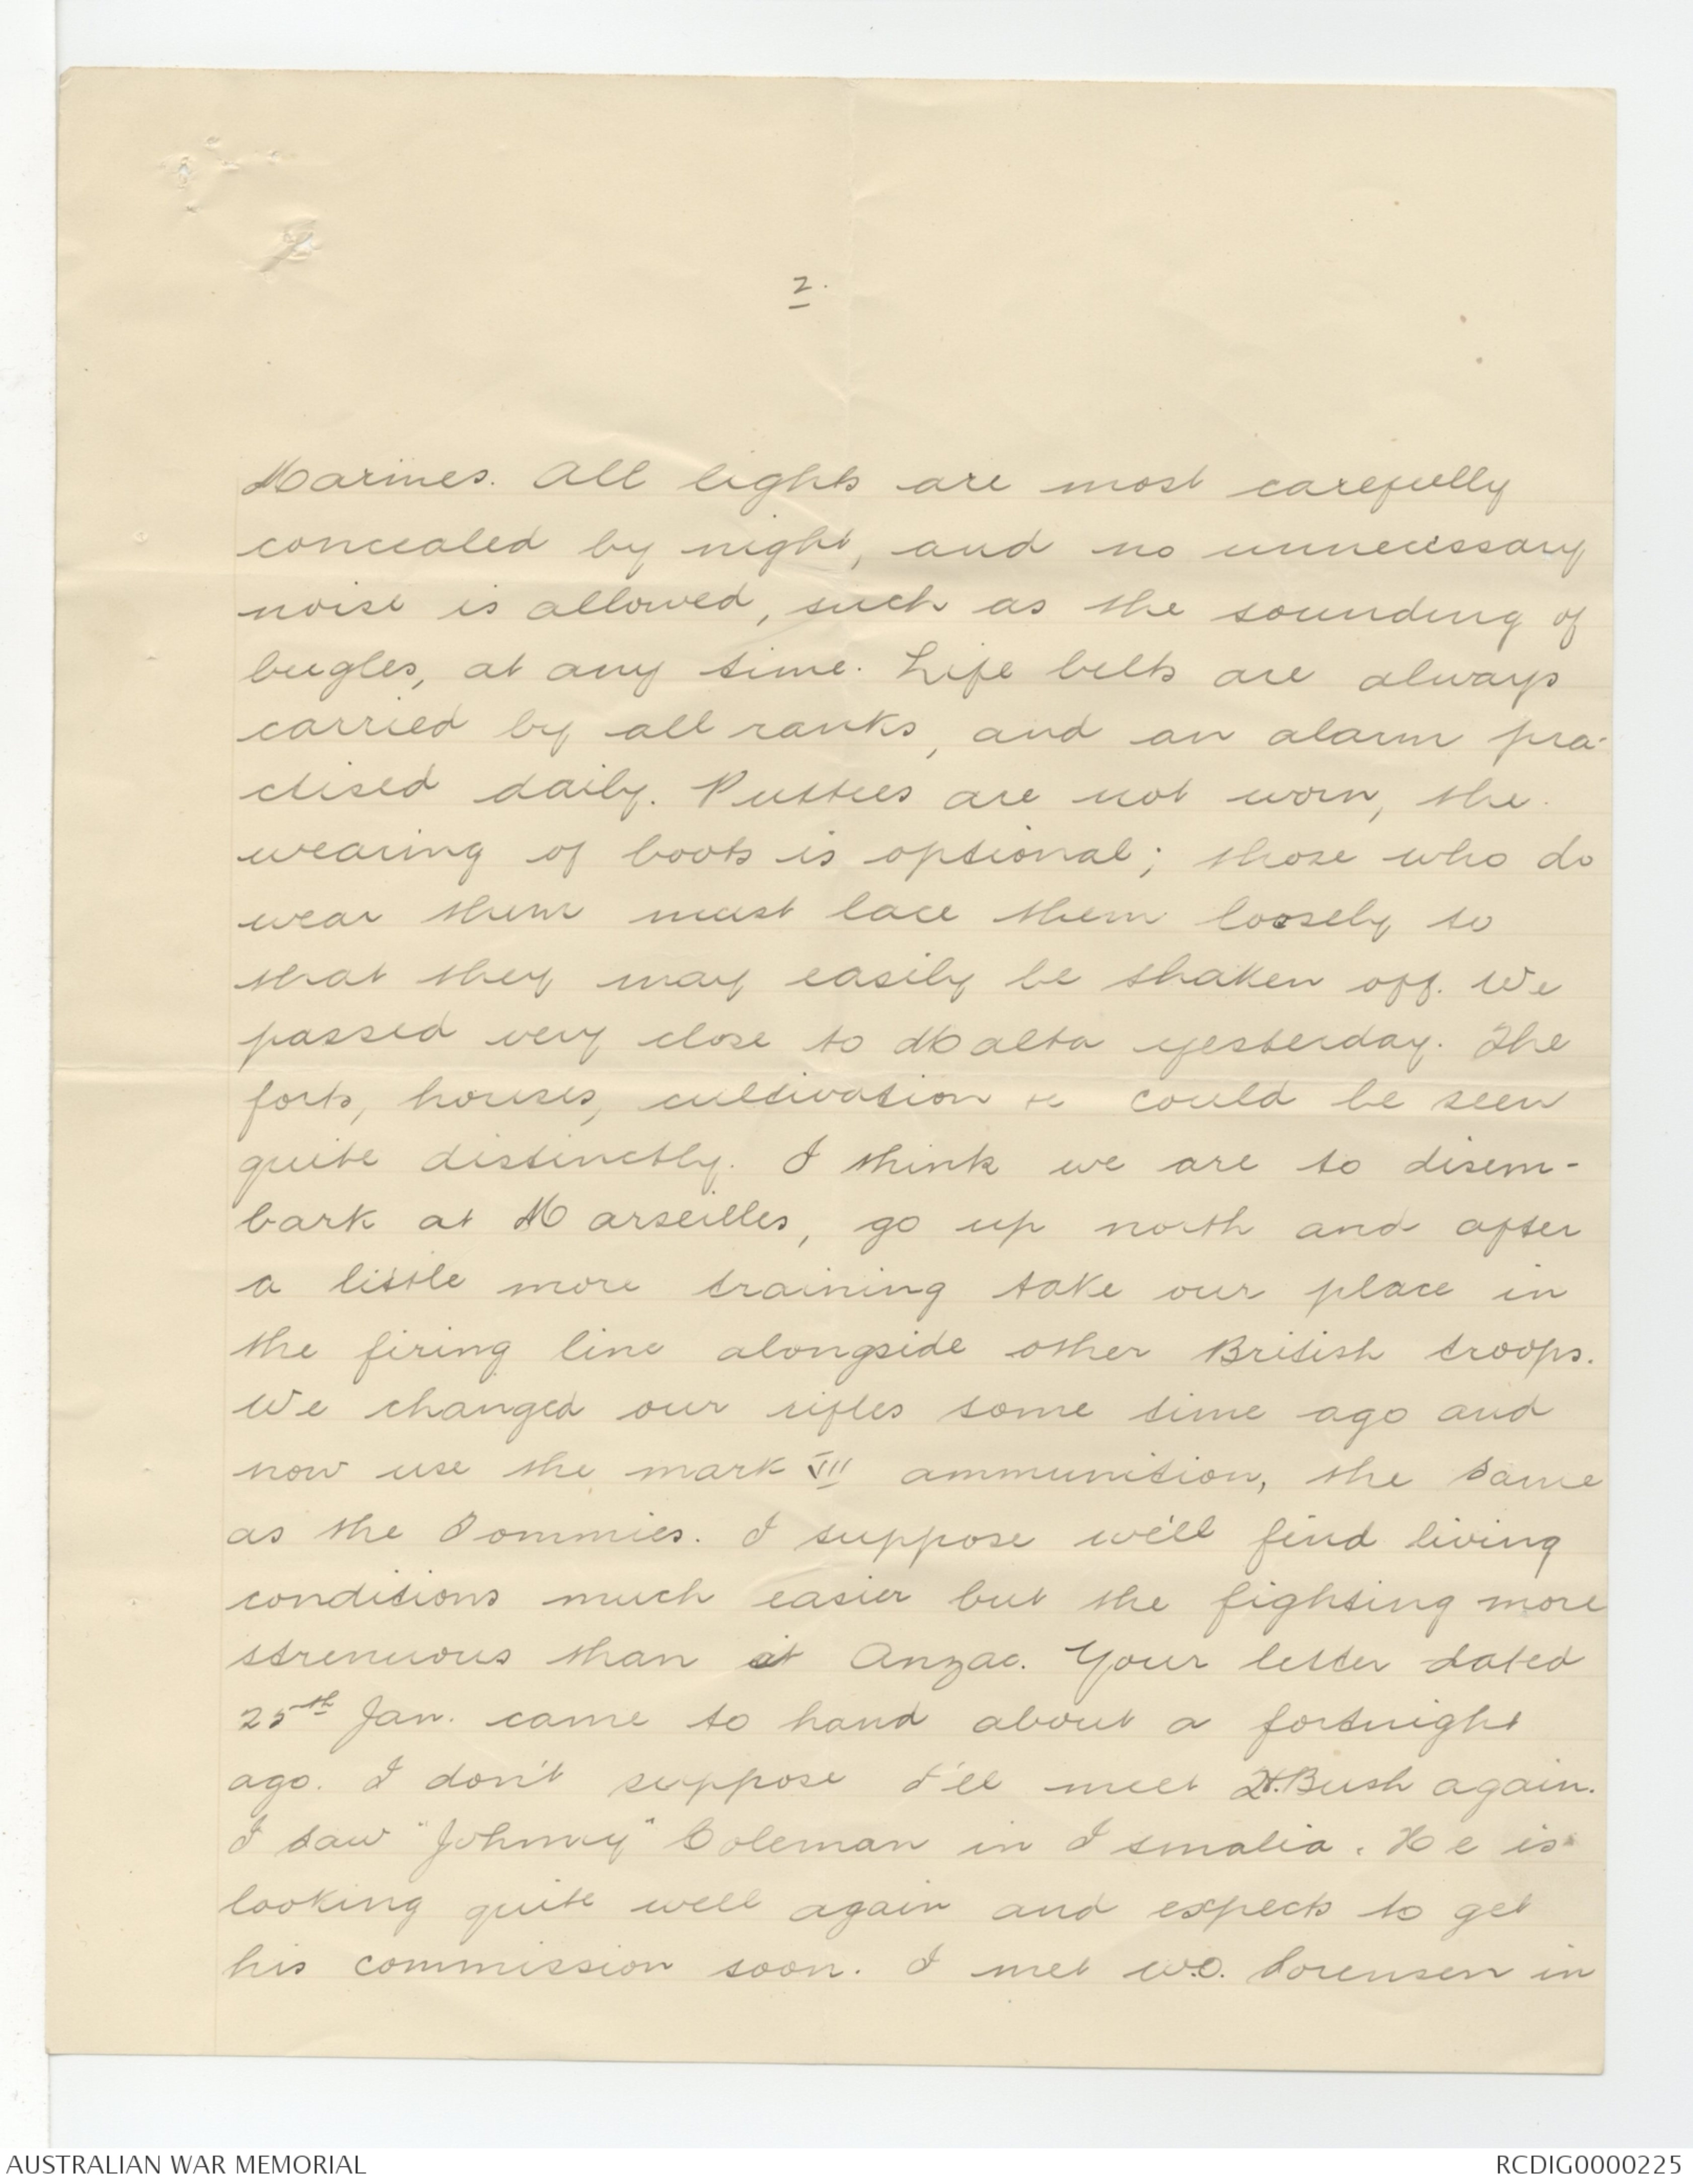 2.
Marines. All lights are most carefully
concealed by night, and no unnecessary
noise is allowed, such as the sounding of
bugles, at any time. Life belts are always
carried by all ranks, and an alarm pra-
ctised daily. Puttees are not worn, the
wearing of boots is optional; those who do
wear them must lace them loosely so
that they may easily be shaken off. We
passed very close to Malta yesterday. The
forts, houses, cultivation &c could be seen
quite distinctly. I think we are to disem-
bark at Marseilles, go up north and after
a little more training take our place in
the firing line alongside other British troops.
We changed our rifles some time ago and
now use the mark VII ammunition, the same
as the Tommies. I suppose we'll find living
conditions much easier but the fighting more
strenuous than at Anzac. Your letter dated
25th Jan. came to hand about a fortnight
ago. I don't suppose I'll meet H. Bush again.
I saw "Johnny" Coleman in Ismalia. He is
looking quite well again and expects to get
his commission soon. I met W.O. Sorensen in
AUSTRALIAN WAR MEMORIAL
RCDIG0000225